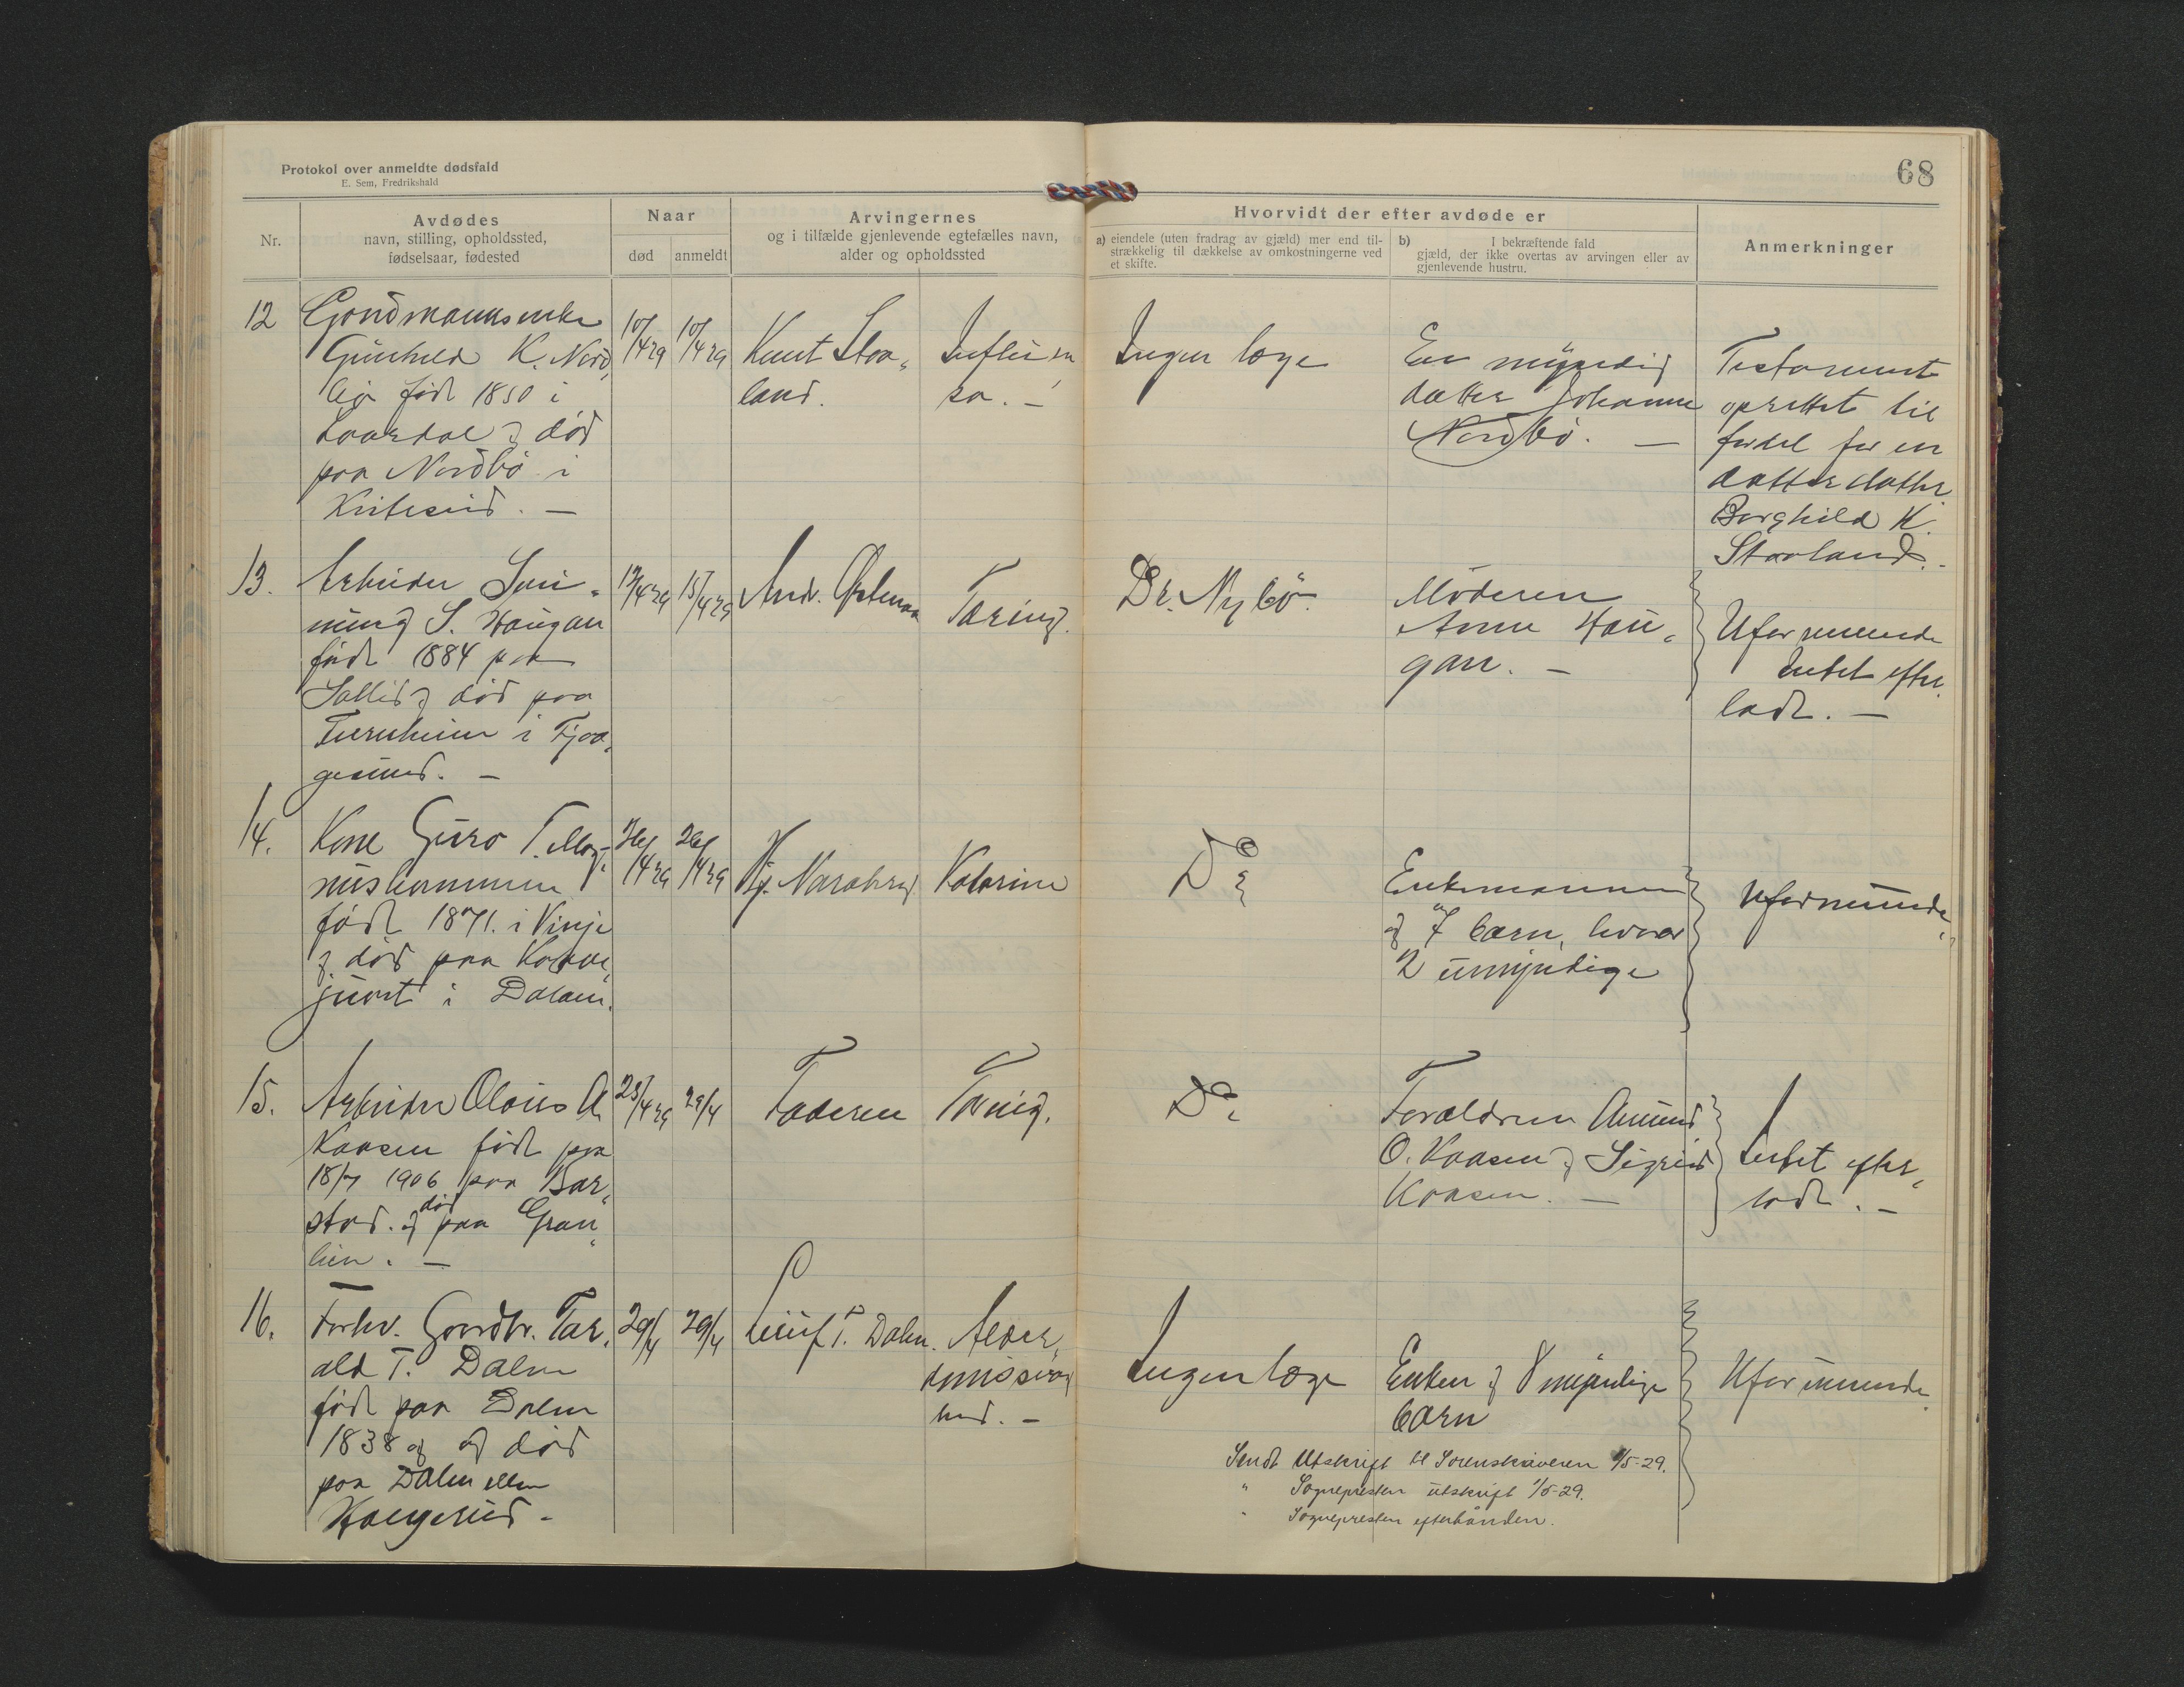 Protokol over anmeldte dødsfald
E. Sem, Fredrikshald
68
Nr.
Avdødes
navn, stilling, opholdssted,
fødselsaar, fødested
Naar
død
anmeldt
Arvingernes
og i tilfælde gjenlevende egtefælles navn,
alder og opholdssted
Hvorvidt der efter avdøde er
a) eiendele (uten fradrag av gjæld) mer end til-
strækkelig til dækkelse av omkostningerne ved
et skifte.
b) I bekræftende fald
gjæld, der ikke overtas av arvingen eller av
gjenlevende hustru.
Anmerkninger
12
Gårdmannsenke
Gunhild K. Nord
bø født 1850 i
Laardal & død
paa Nordbø i
10/4 29
10/4 29
Knut Staa-
land.
Influen
sa. –
Ingen læge
En myndig
datter Johanne
Nordbø. –
Testament
oprettet til
fordel for en
datterdatter
Borghild K.
Staaland.
13.
Arbeider
S. Haugan
født 1884 paa
& død paa
i Fjaa-
gesund. –
12/4 29
15/4 29
Andr.
Tæring.
Dr. Nybø.
Moderen
Anne Hau-
gan. –
Uformuende
Intet efter
ladt. –
14.
Kone Guro T. Mag-
født 1871. i Vinje
& død paa
i Dalane.
26/4 29
26/4 29
Do
Enkemannen
og 7 barn, hvorav
2 umyndige
Uformuende
15.
Arbeider Olaus A.
Kaasen født paa
18/7 1906 paa Bar-
stad. & død paa Gran-
lien. –
25/4 29
29/4
Faderen
Tæring.
Do
Forældrene Amund
O. Kaasen & Sigrid
Kaasen. –
Intet efter-
ladt. –
16.
Forhv. Gaardbr. Tar-
ald T. Dalen
født paa Dalen
1838 og & død
paa Dalen ellen
29/4
29/4
T. Dalen.
Alder-
domssvag
hed. –
Ingen læge
Enken & 8 myndige
barn
Uformuende
Sendt Utskrift til Sorenskriveren 1/5-29.
" Sognepresten utskrift 1/5-29.
" Sognepresten efterhånden.